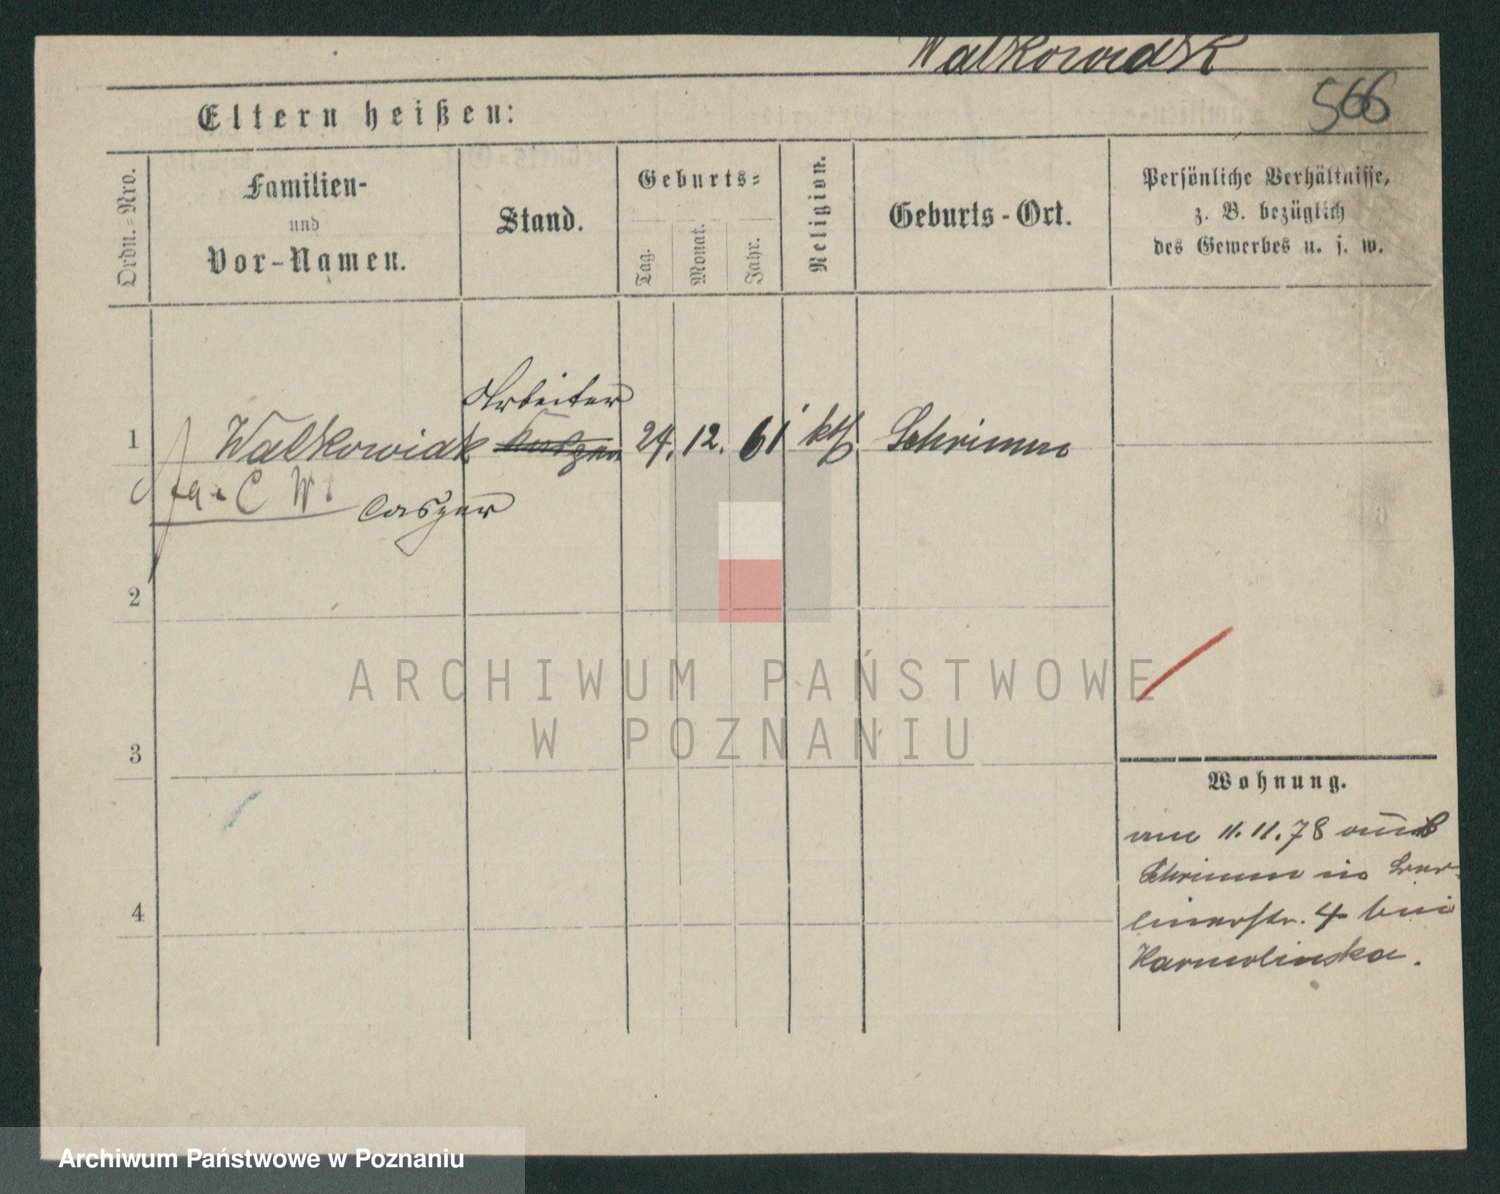 Walkowiak
566
Eltern heißen:
Ordn.=Nro.
Familien-
und
Vor-Namen.
Stand.
Geburts=
Tag.
Monat.
Jahr.
Religion.
Geburts-Ort.
Persönliche Verhältnisse,
z. B. bezüglich
des Gewerbes u. s. w.
Arbeiter
1 Walkowiak 24. 12. 61 kth. Schrimm
C W.
Casper
2
3
4
ARCHIWUM PAŃSTWOWE
W POZNANIU
Wohnung.
am 11.11.78 aus
Schrimm in Ber-
linerstr. 4 bei
Karmolinska.
Archiwum Państwowe w Poznaniu